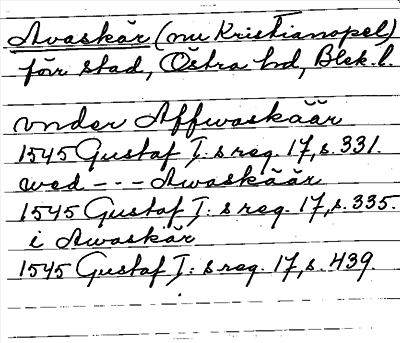 Avaskär (nu Kristianopel)
förr stad, Östra hd, Blek. l.
vnder Affwaskäär
1545 Gustaf I:s reg. 17, s. 331.
wed --- Awaskäär
1545 Gustaf I:s reg. 17, s. 335.
i Awaskär
1545 Gustaf I:s reg. 17, s. 439.